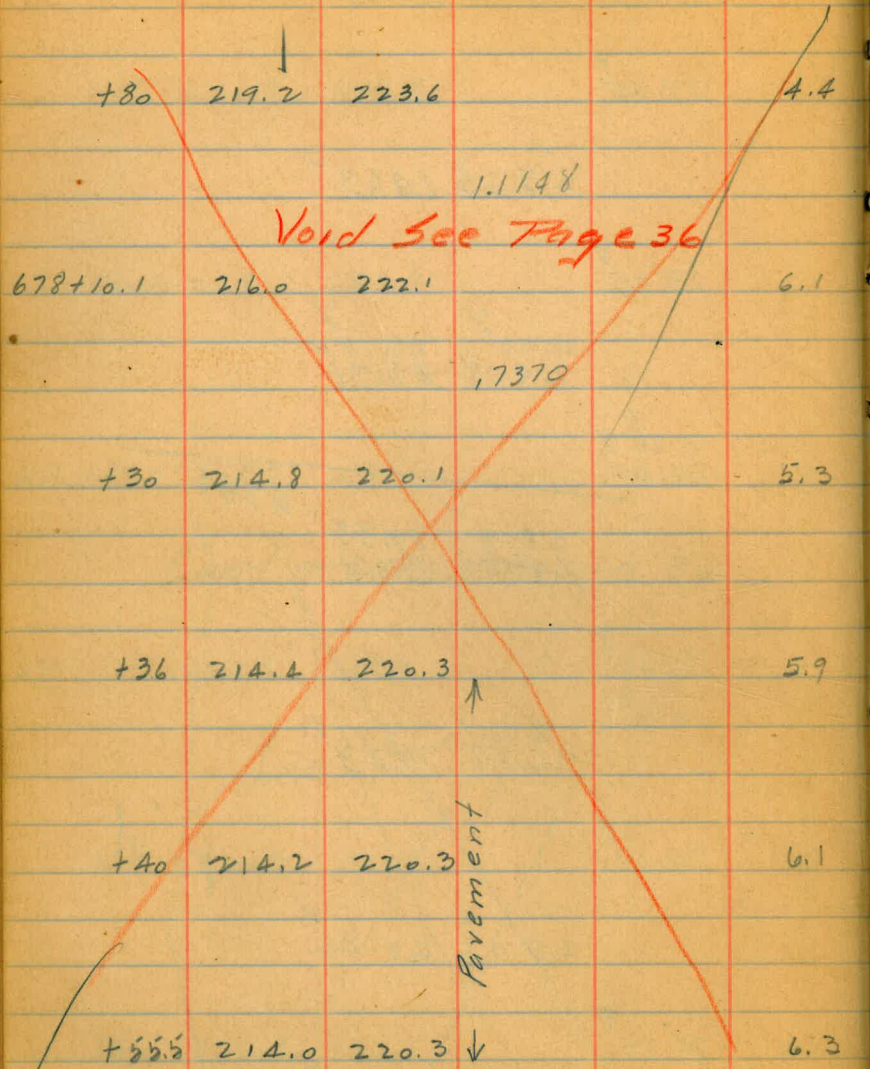 +80 219.2 223.6 4.4
1.1148
Void See Page 36
678+10.1 216.0 222.1 6.1
,7370
+30 214.8 220.1 5.3
+36 214.4 220.3 5.9
+40 214.2 220.3 6.1
Pavement
+55.5 214.0 220.3 6.3